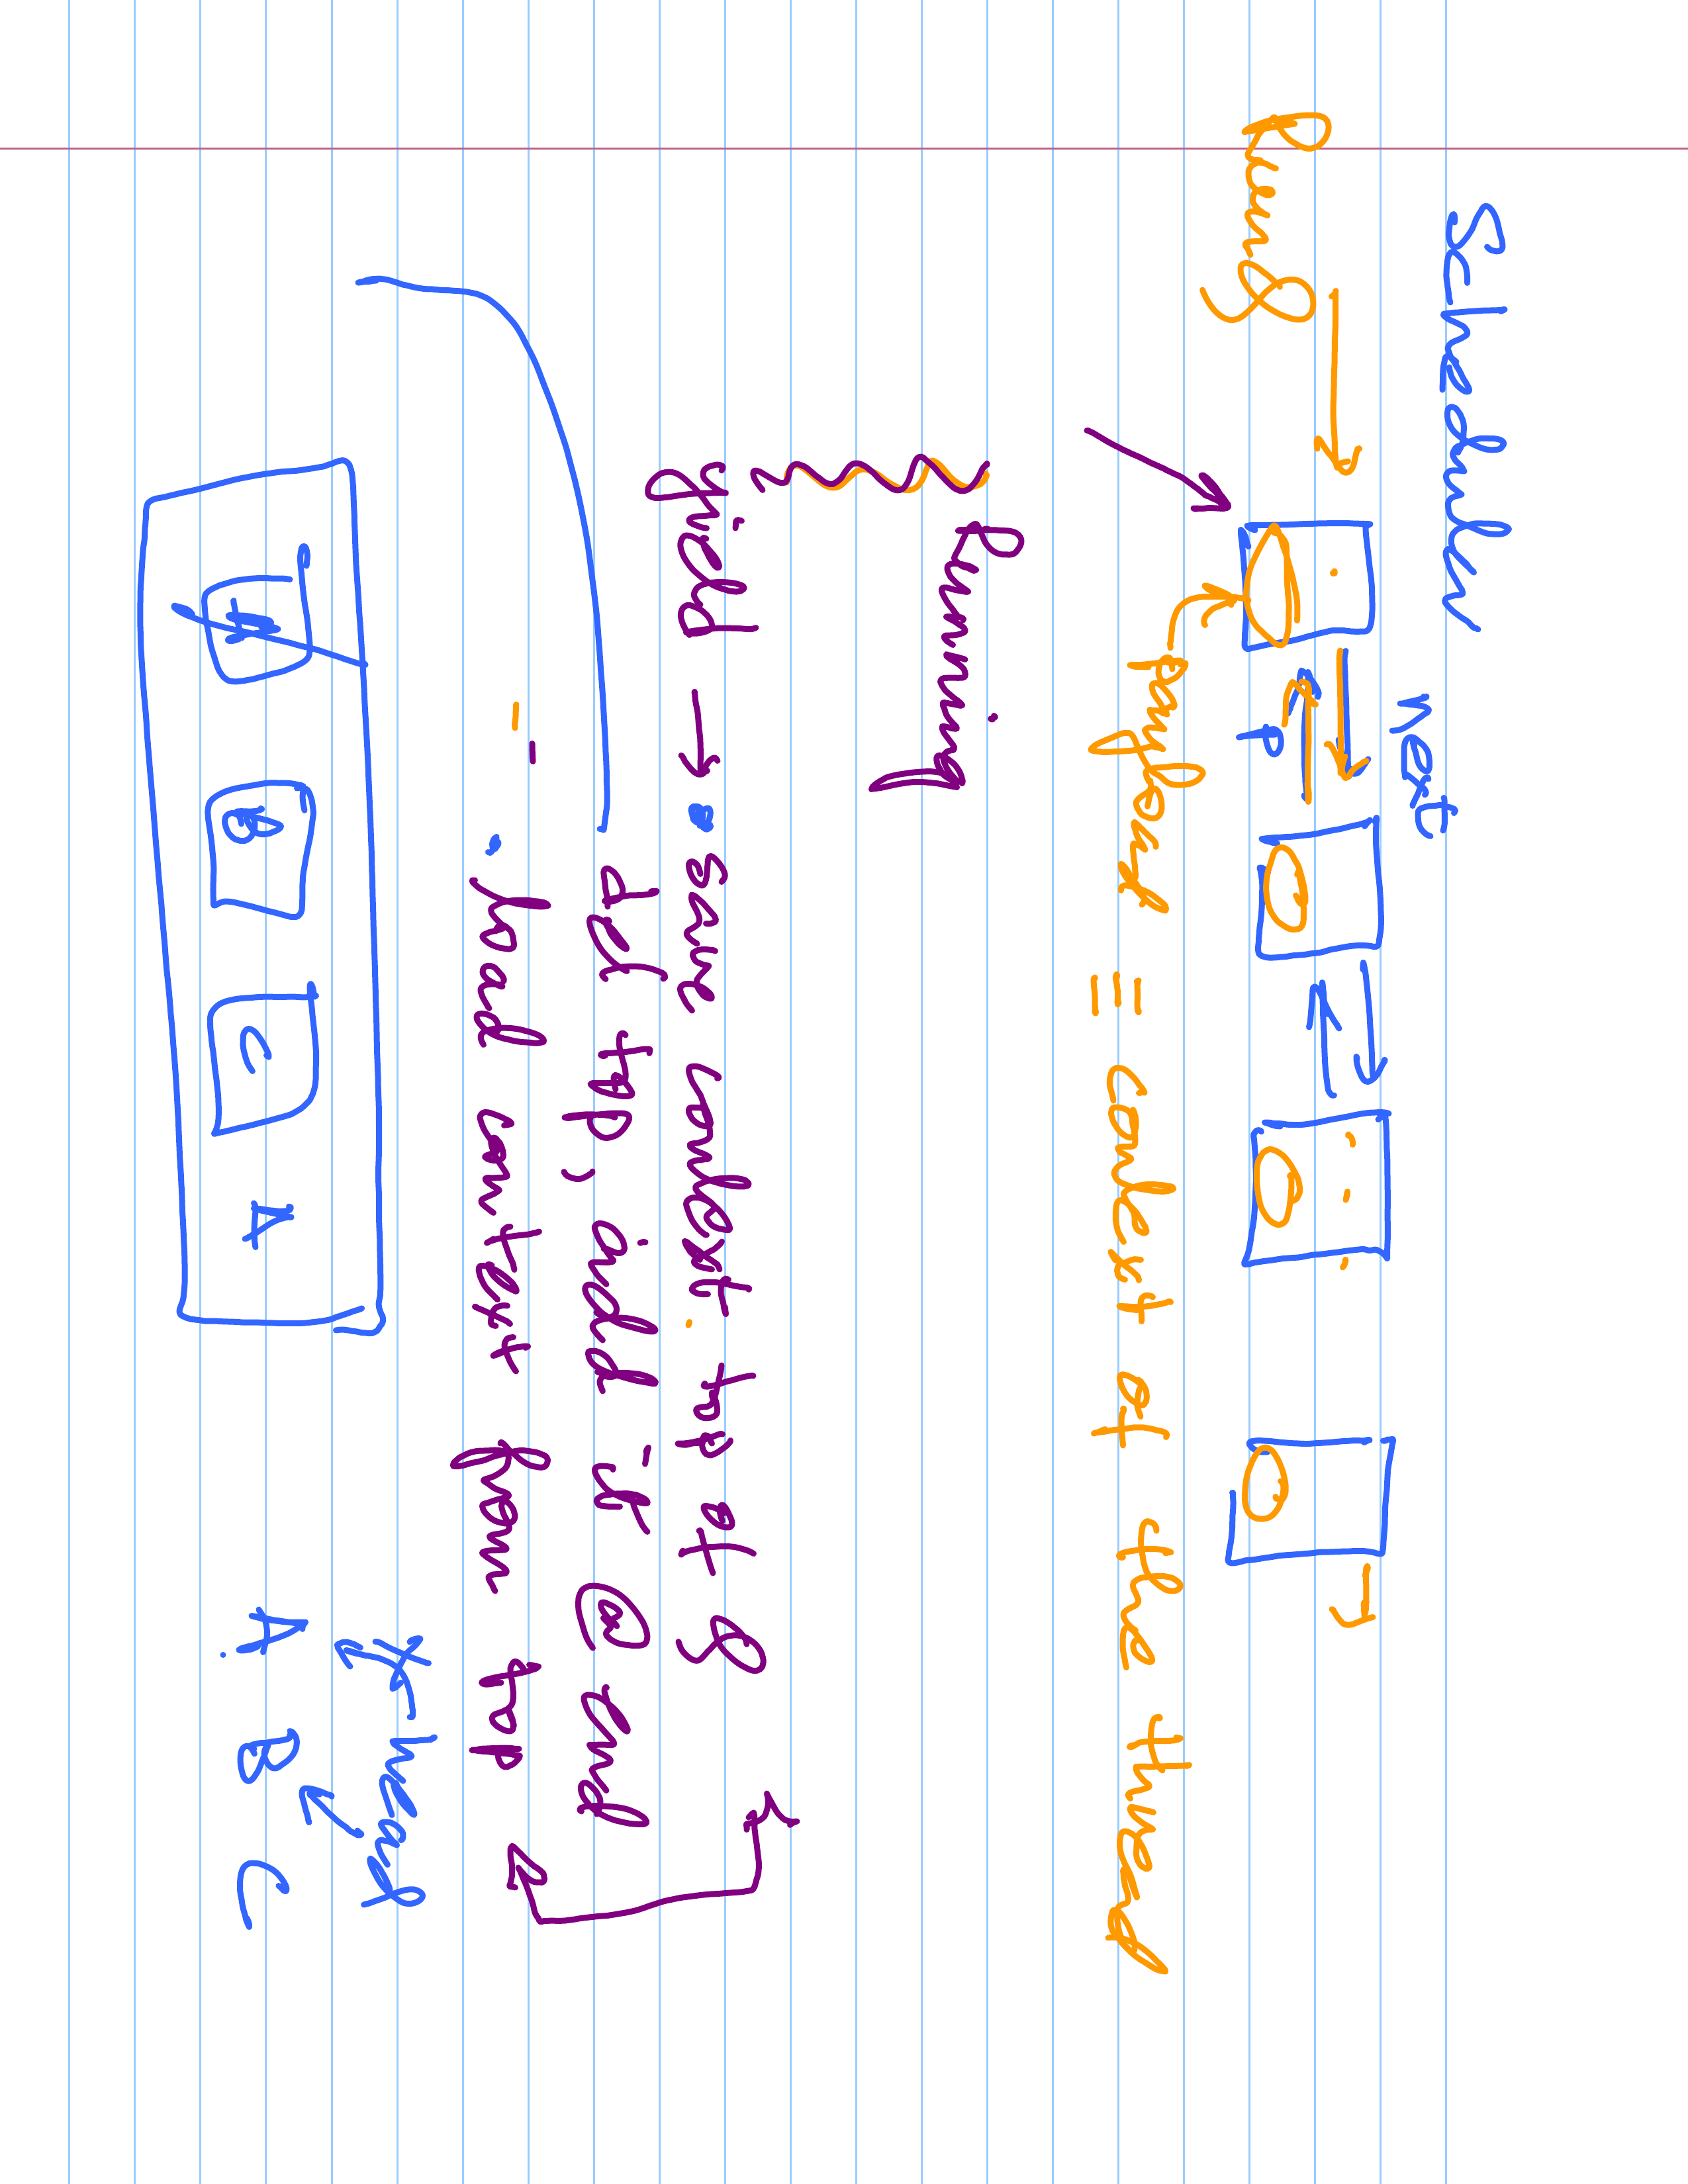 Scheduler
Next
RunQ
P
payload ≡ context of the thread
Running
yield → • save context top of Q
del top, add it @ end
• load context from top
A B C A
A B C